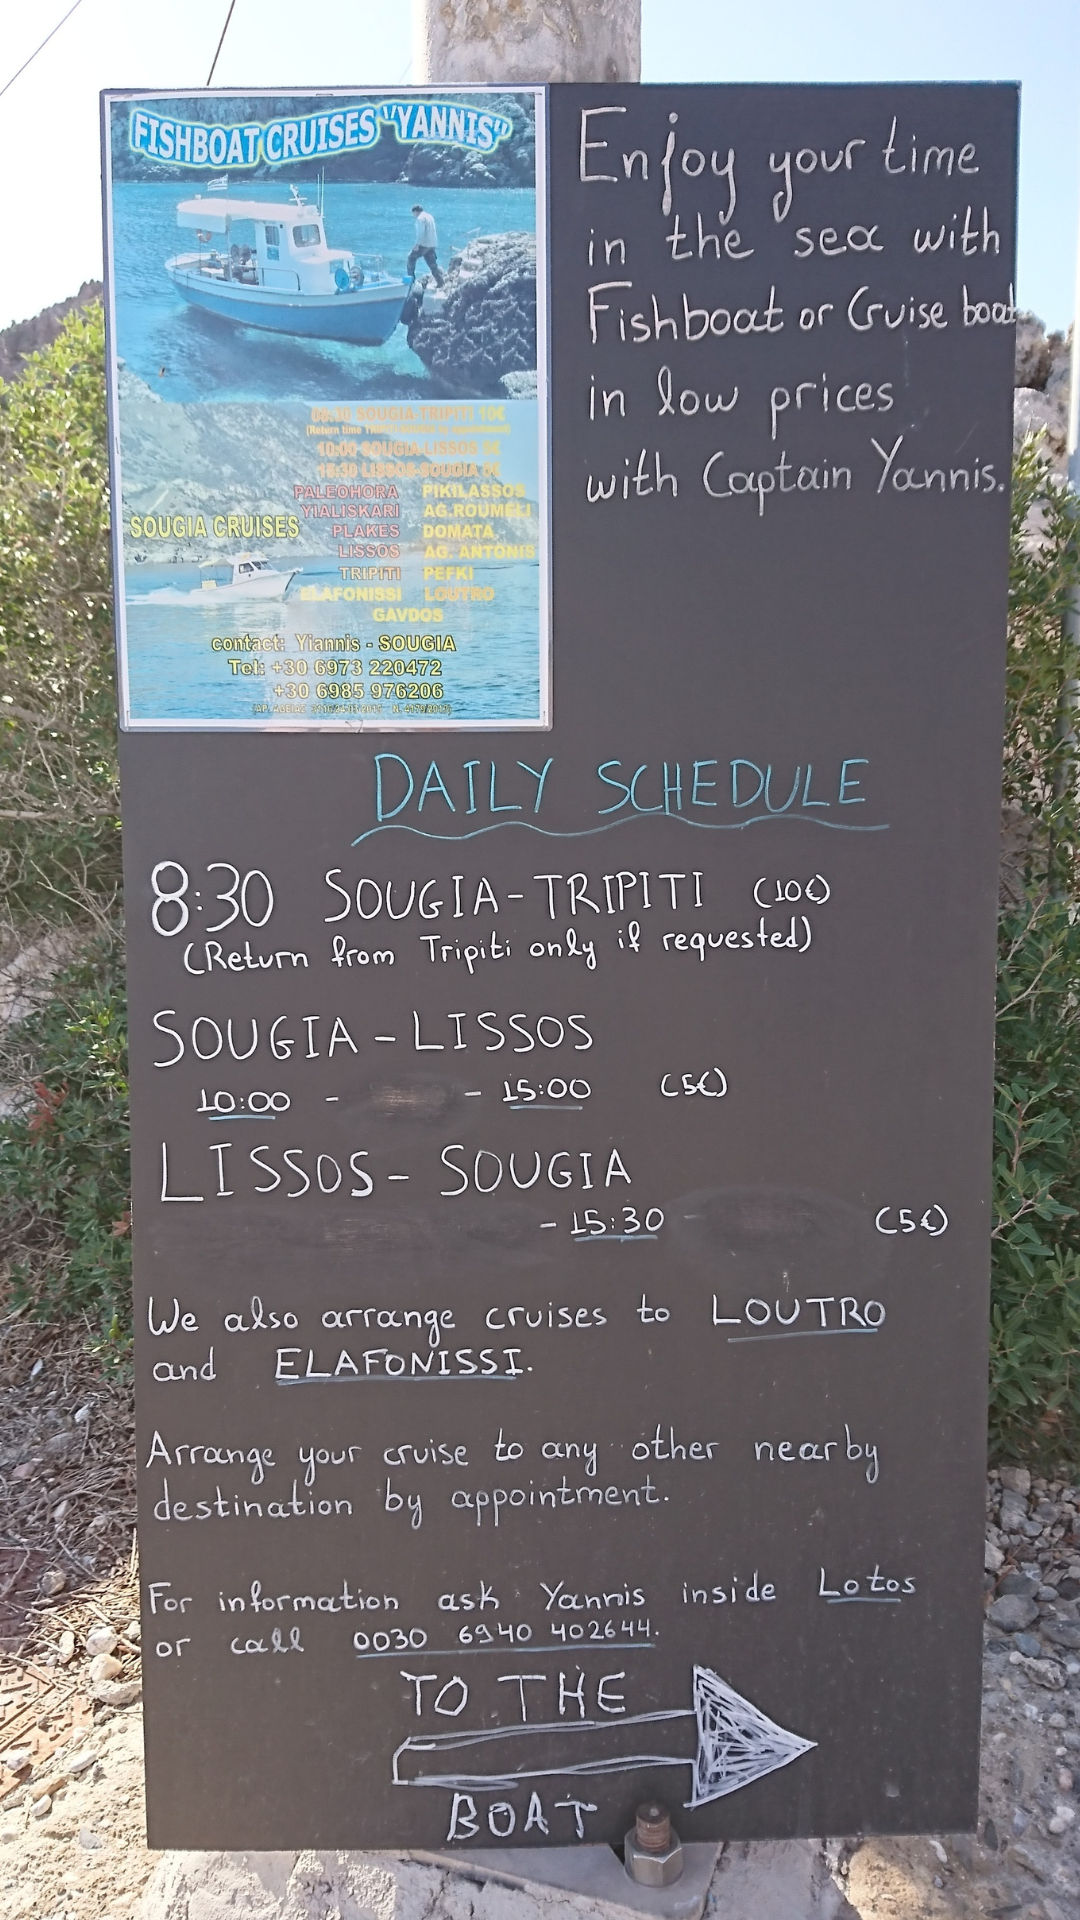 FISHBOAT CRUISES "YANNIS"
08:30 SOUGIA-TRIPITI 10€
10:00 SOUGIA-LISSOS 5€
15:30 LISSOS-SOUGIA 5€
PALEOHORA PIKILASSOS
YIALISKARI AG.ROUMELI
SOUGIA CRUISES
PLAKES DOMATA
LISSOS AG. ANTONIS
TRIPITI PEFKI
ELAFONISSI LOUTRO
GAVDOS
contact: Yiannis - SOUGIA
Tel: +30 6973 220472
+30 6985 976206
Enjoy your time
in the sea with
Fishboat or Cruise boat
in low prices
with Captain Yannis.
DAILY SCHEDULE
8:30 SOUGIA-TRIPITI (10€)
(Return from Tripiti only if requested)
SOUGIA-LISSOS
10:00 - - 15:00 (5€)
LISSOS-SOUGIA
- 15:30 - (5€)
We also arrange cruises to LOUTRO
and ELAFONISSI.
Arrange your cruise to any other nearby
destination by appointment.
For information ask Yannis inside Lotos
or call 0030 6940 402644.
TO THE
BOAT